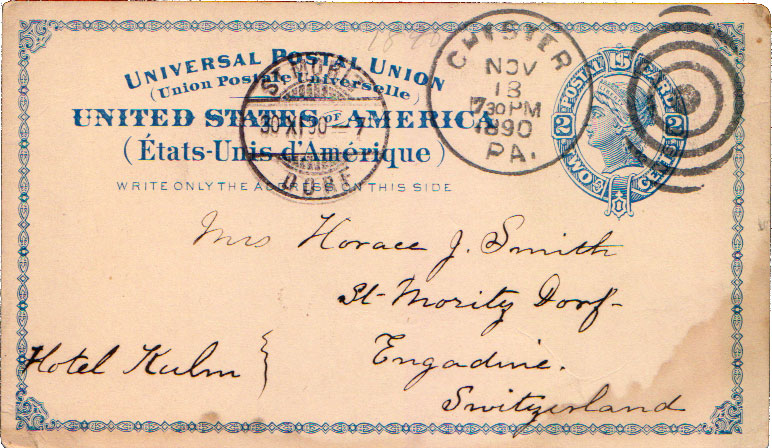 UNIVERSAL POSTAL UNION
(Union Postale Universelle)
UNITED STATES OF AMERICA
(États-Unis d'Amérique)
WRITE ONLY THE ADDRESS ON THIS SIDE
ST. MORITZ
30 XI 90 - 7
DORF
CHESTER
NOV
18
730PM
1890
PA.
POSTAL CARD
2 2
TWO CENTS
Mrs Horace J. Smith
St-Moritz Dorf-
Engadine.
Switzerland
Hotel Kulm